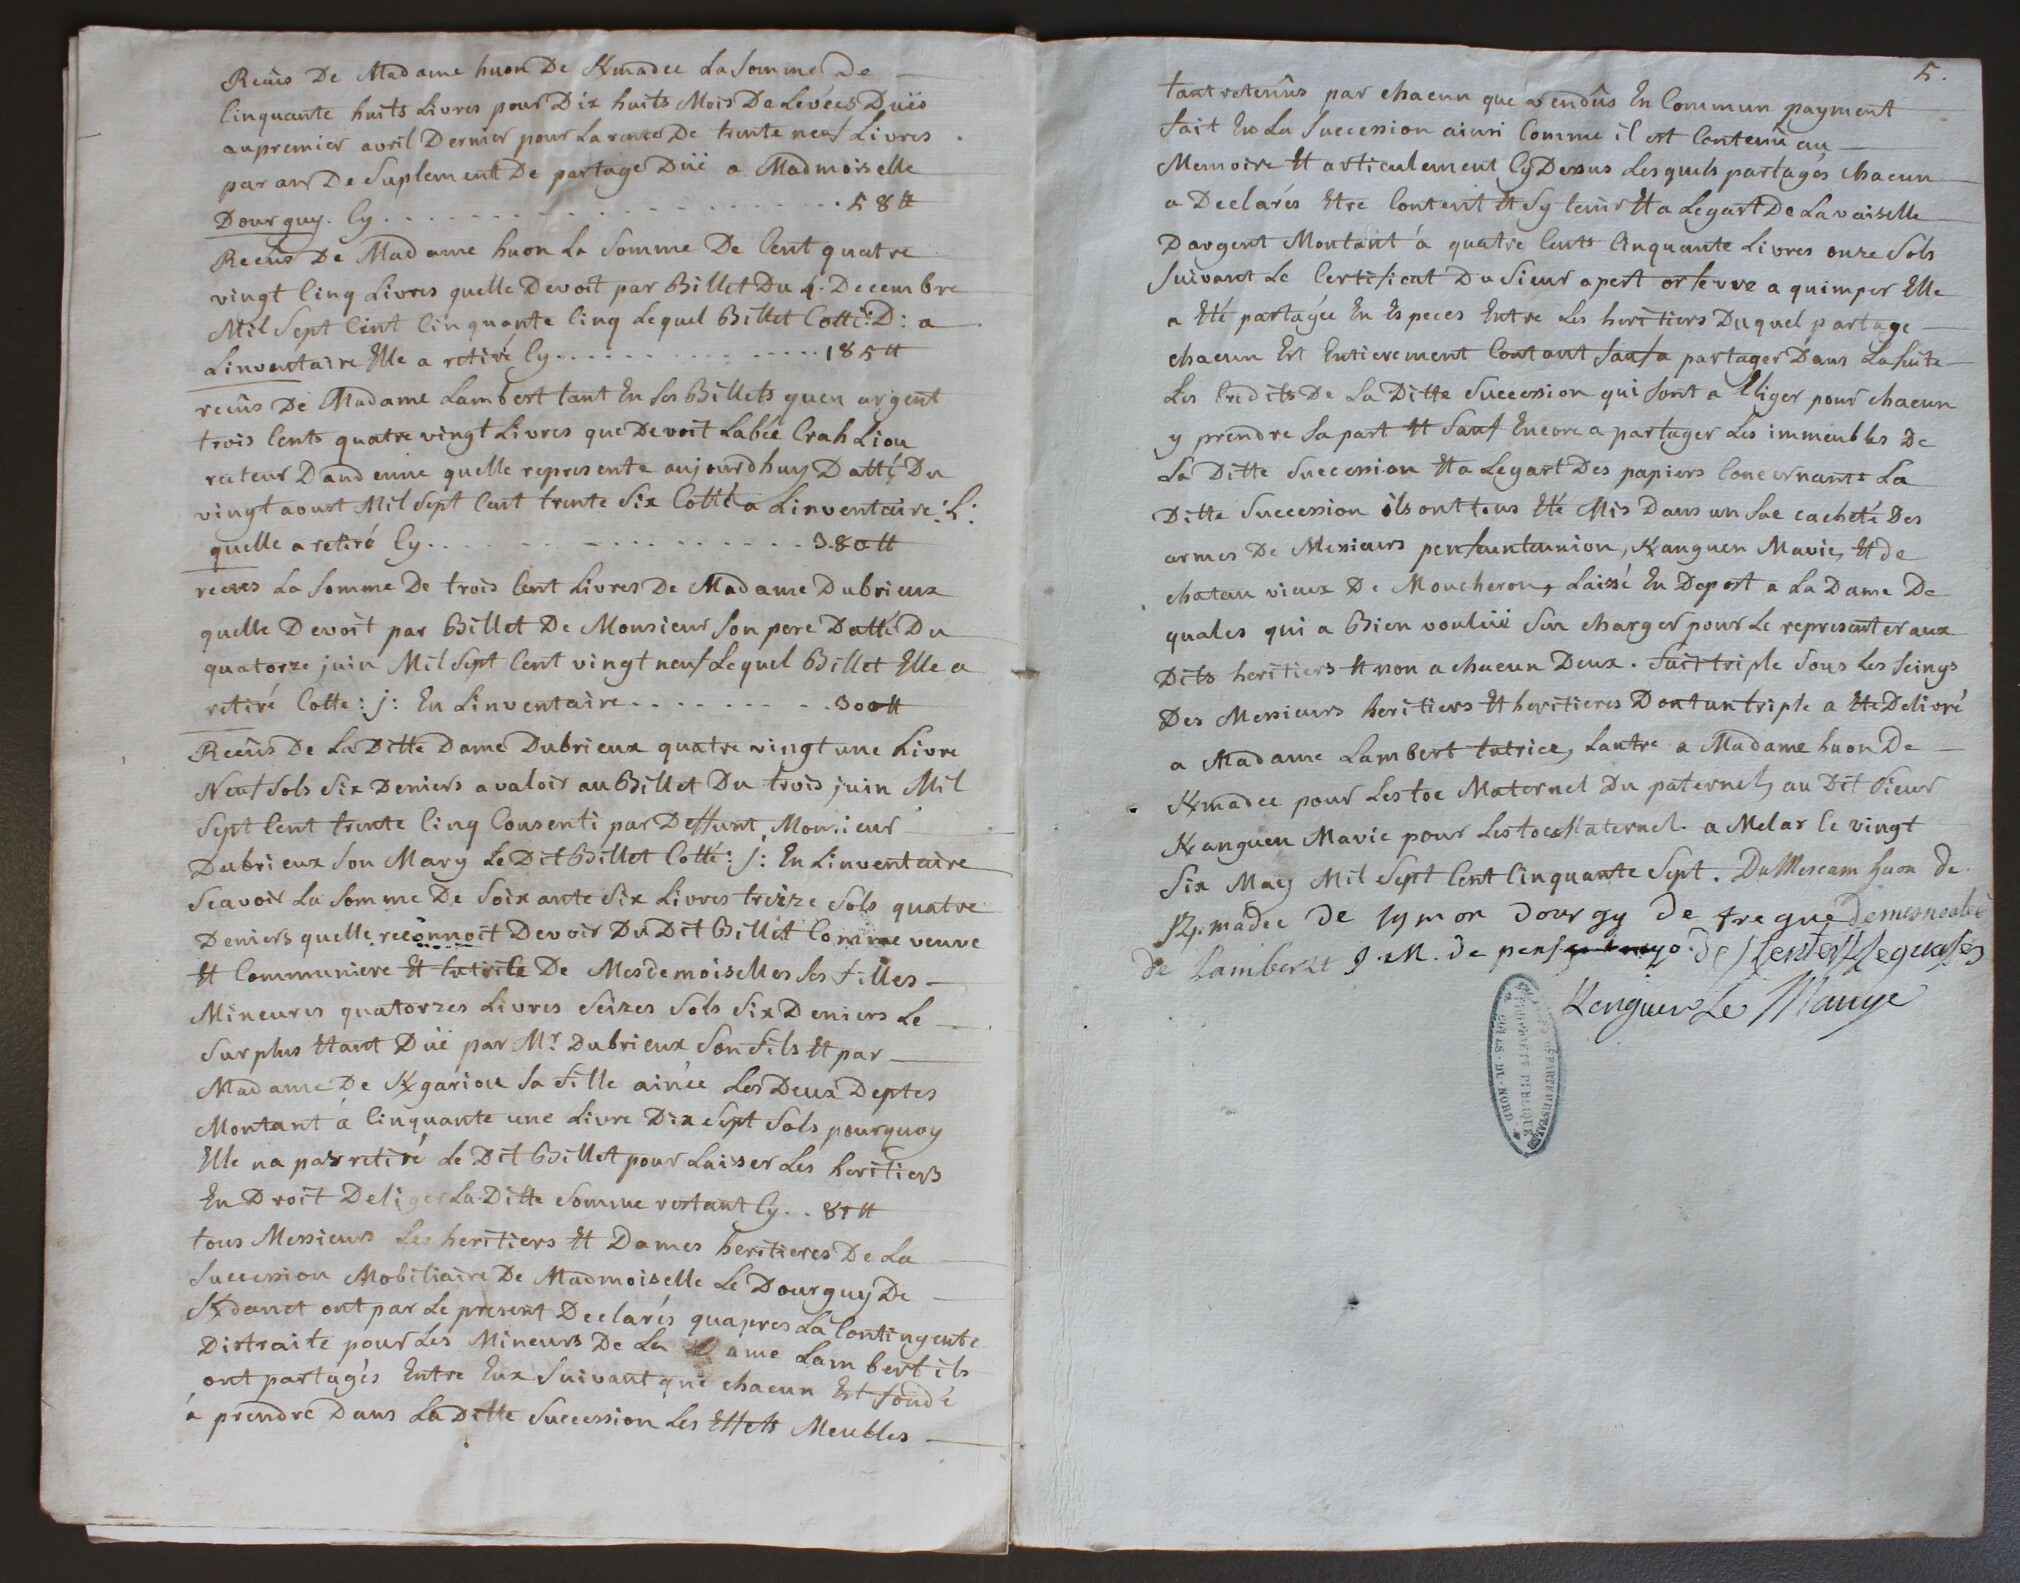 Recûs De Madame huon De Kmadec La Somme De
Cinquante huits Livres pour Dix huits Mois De Levées Duës
au premier avril Dernier pour La rente De trente neuf Livres
par an De Suplement De partage Düe a Madmoiselle
Dourguy. Cy . . . . . . . . . . 58 tt
Recûs De Madame huon La Somme De Cent quatre
vingt Cinq Livres quelle Devoit par Billet Du 4. Decembre
Mil Sept Cent Cinquante Cinq Lequel Billet Cotté: D: a
Linventaire Elle a retiré Cy . . . . . . . . . . 185 tt
recûs De Madame Lambert tant En Ses Billets quen argent
trois Cents quatre vingt Livres que Devoit Labée Crah Liou
recteur Dandenne quelle represente aujourdhuy Datté Du
vingt aoust Mil Sept Cent trente Six Cotté a Linventaire: L:
quelle a retiré Cy . . . . . . . . . . 380 tt
recues La Somme De trois Cent Livres De Madame Dubrieux
quelle Devoit par Billet De Monsieur Son pere Datté Du
quatorze juin Mil Sept Cent vingt neuf Lequel Billet Elle a
retiré Cotte: j: En Linventaire . . . . . . . . . 300 tt
Recûs De La Ditte Dame Dubrieux quatre vingt une Livre
Neuf Sols Six Deniers a valoir au Billet Du trois juin Mil
Sept Cent trente Cinq Consenti par Deffunt, Monsieur
Dubrieux Son Mary Le Dit Billet Cotté: j: En Linventaire
Scavoir La Somme De Soixante Six Livres treize Sols quatre
Deniers quelle reconnoit Devoir Du Dit Billet Comme veuve
Et Communiere Et tutrice De Mesdemoiselles Ses filles
Mineures quatorzes Livres Seizes Sols Six Deniers Le
Surplus Etant Düe par Mr Dubrieux Son fils Et par
Madame De Kgariou Sa fille ainée Les Deux Deptes
Montant á Cinquante une Livre Dix Sept Sols pourquoy
Elle na pas retiré Le Dit Billet pour Laisser Les heritiers
En Droit Deliger La Ditte Somme restant Cy . . 81 tt
tous Messieurs Les heritiers Et Dames heritieres De La
Succession Mobiliaire De Madmoiselle Le Dourguy De
Kdanet ont par Le present Declarés quapres La Contingente
Distraite pour Les Mineurs De La Dame Lambert ils
ont partagés Entre Eux Suivant que chacun Est fondé
á prendre Dans La Ditte Succession Les Effets Meubles
5.
tant retenûs par chacun que vendûs En Commun payment
fait En La Succession ainsi Comme il est Contenû au
Memoire Et articulement Cy Dessus Lesquels partagés chacun
a Declarés Etre Content Et Sy tenir Et a Legart De La vaiselle
Dargent Montant á quatre Cents Cinquante Livres onze Sols
Suivant Le Certificat Du Sieur apert orfevre a quimper Elle
a Eté partagée En Especes Entre Les heritiers Duquel partage
chacun Est Entierement Contant Sauf a partager Dans La Suite
Les Credits De La Ditte Succession qui Sont a Eliger pour chacun
y prendre Sa part Et Sauf Encore a partager Les immeubles De
La Ditte Succession Et a Legart Des papiers Concernants La
Ditte Succession ils ont tous Eté Mis Dans un Sac cacheté Des
armes De Messieurs penfeunteunion, Kanguen Mavic, Et de
chateau vieux De Moucheron, Laissé En Depost a La Dame De
quales qui a Bien vouluü Sen charger pour Le representer aux
Dits heritiers Et non a chacun Deux. fait triple Sous Les Seings
Des Messieurs heritiers Et heritieres Dont un triple a Ete Delivré
a Madame Lambert tutrice, Lautre a Madame huon De
Kmadec pour Lestoc Maternel Du paternel, au Dit Sieur
Kanguen Mavic pour Lestoc Maternel. a Melar Le vingt
Six May Mil Sept Cent Cinquante Sept. Du Mescam huon de
Kmadec de Symon dourgy de tregue
de Lambert J. M. de
Kenguen Le Mauge
CÔTES-DU-NORD